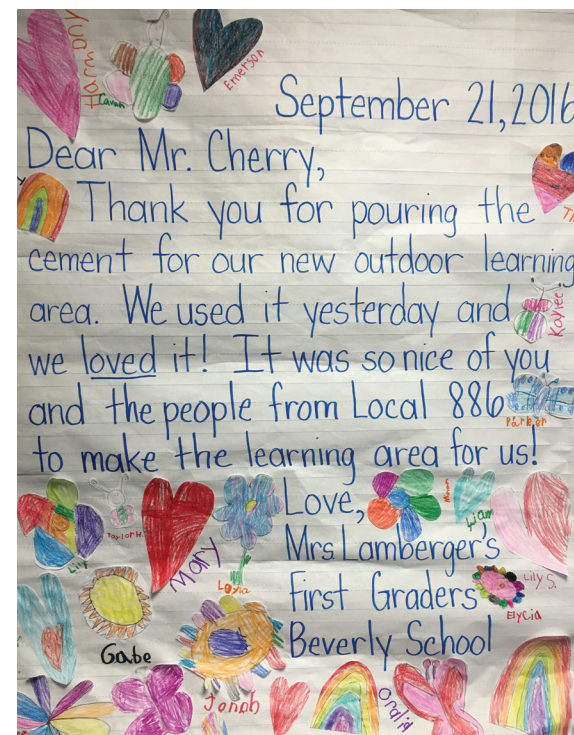 Harmony
Carson
Emerson
September 21, 2016
Dear Mr. Cherry,
Thank you for pouring the
cement for our new outdoor learning
area. We used it yesterday and
Kaylee
we loved it! It was so nice of you
and the people from Local 886
Parker
to make the learning area for us!
Love,
Mrs Lamberger's
First Graders
Beverly School
Lily
Taylor H.
Mary
Layla
Liam
Lily S.
Elycia
Gabe
Jonah